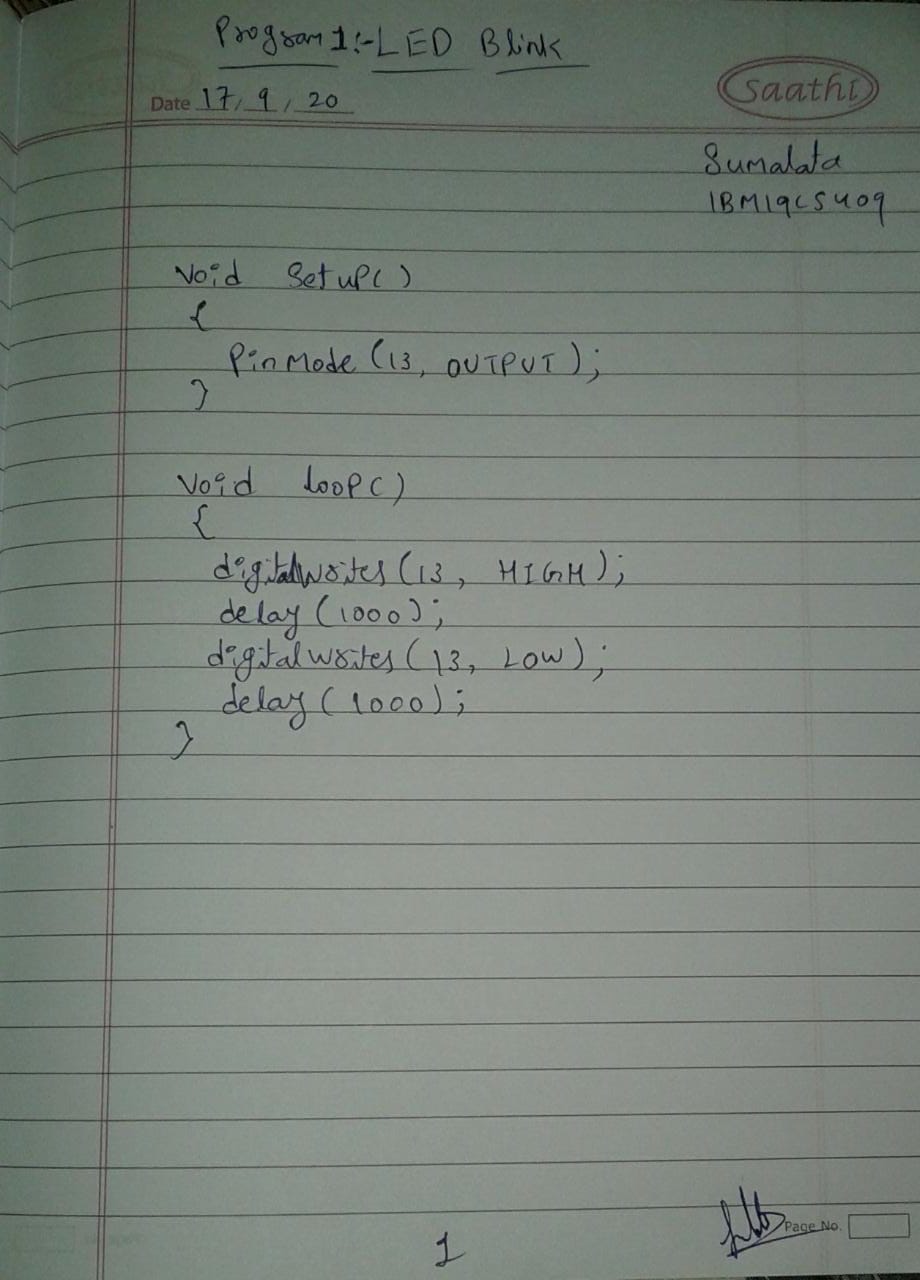 Program 1:- LED Blink
Date 17, 9, 20
Saathi
Sumalata
1BM19CS409
Void Setup()
{
PinMode (13, OUTPUT);
}
Void loop()
{
digitalwrites (13, HIGH);
delay (1000);
digitalwrites (13, LOW);
delay (1000);
}
Page No.
1